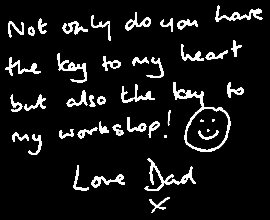 Not only do you have
the key to my heart
but also the key to
my workshop!
Love Dad
x